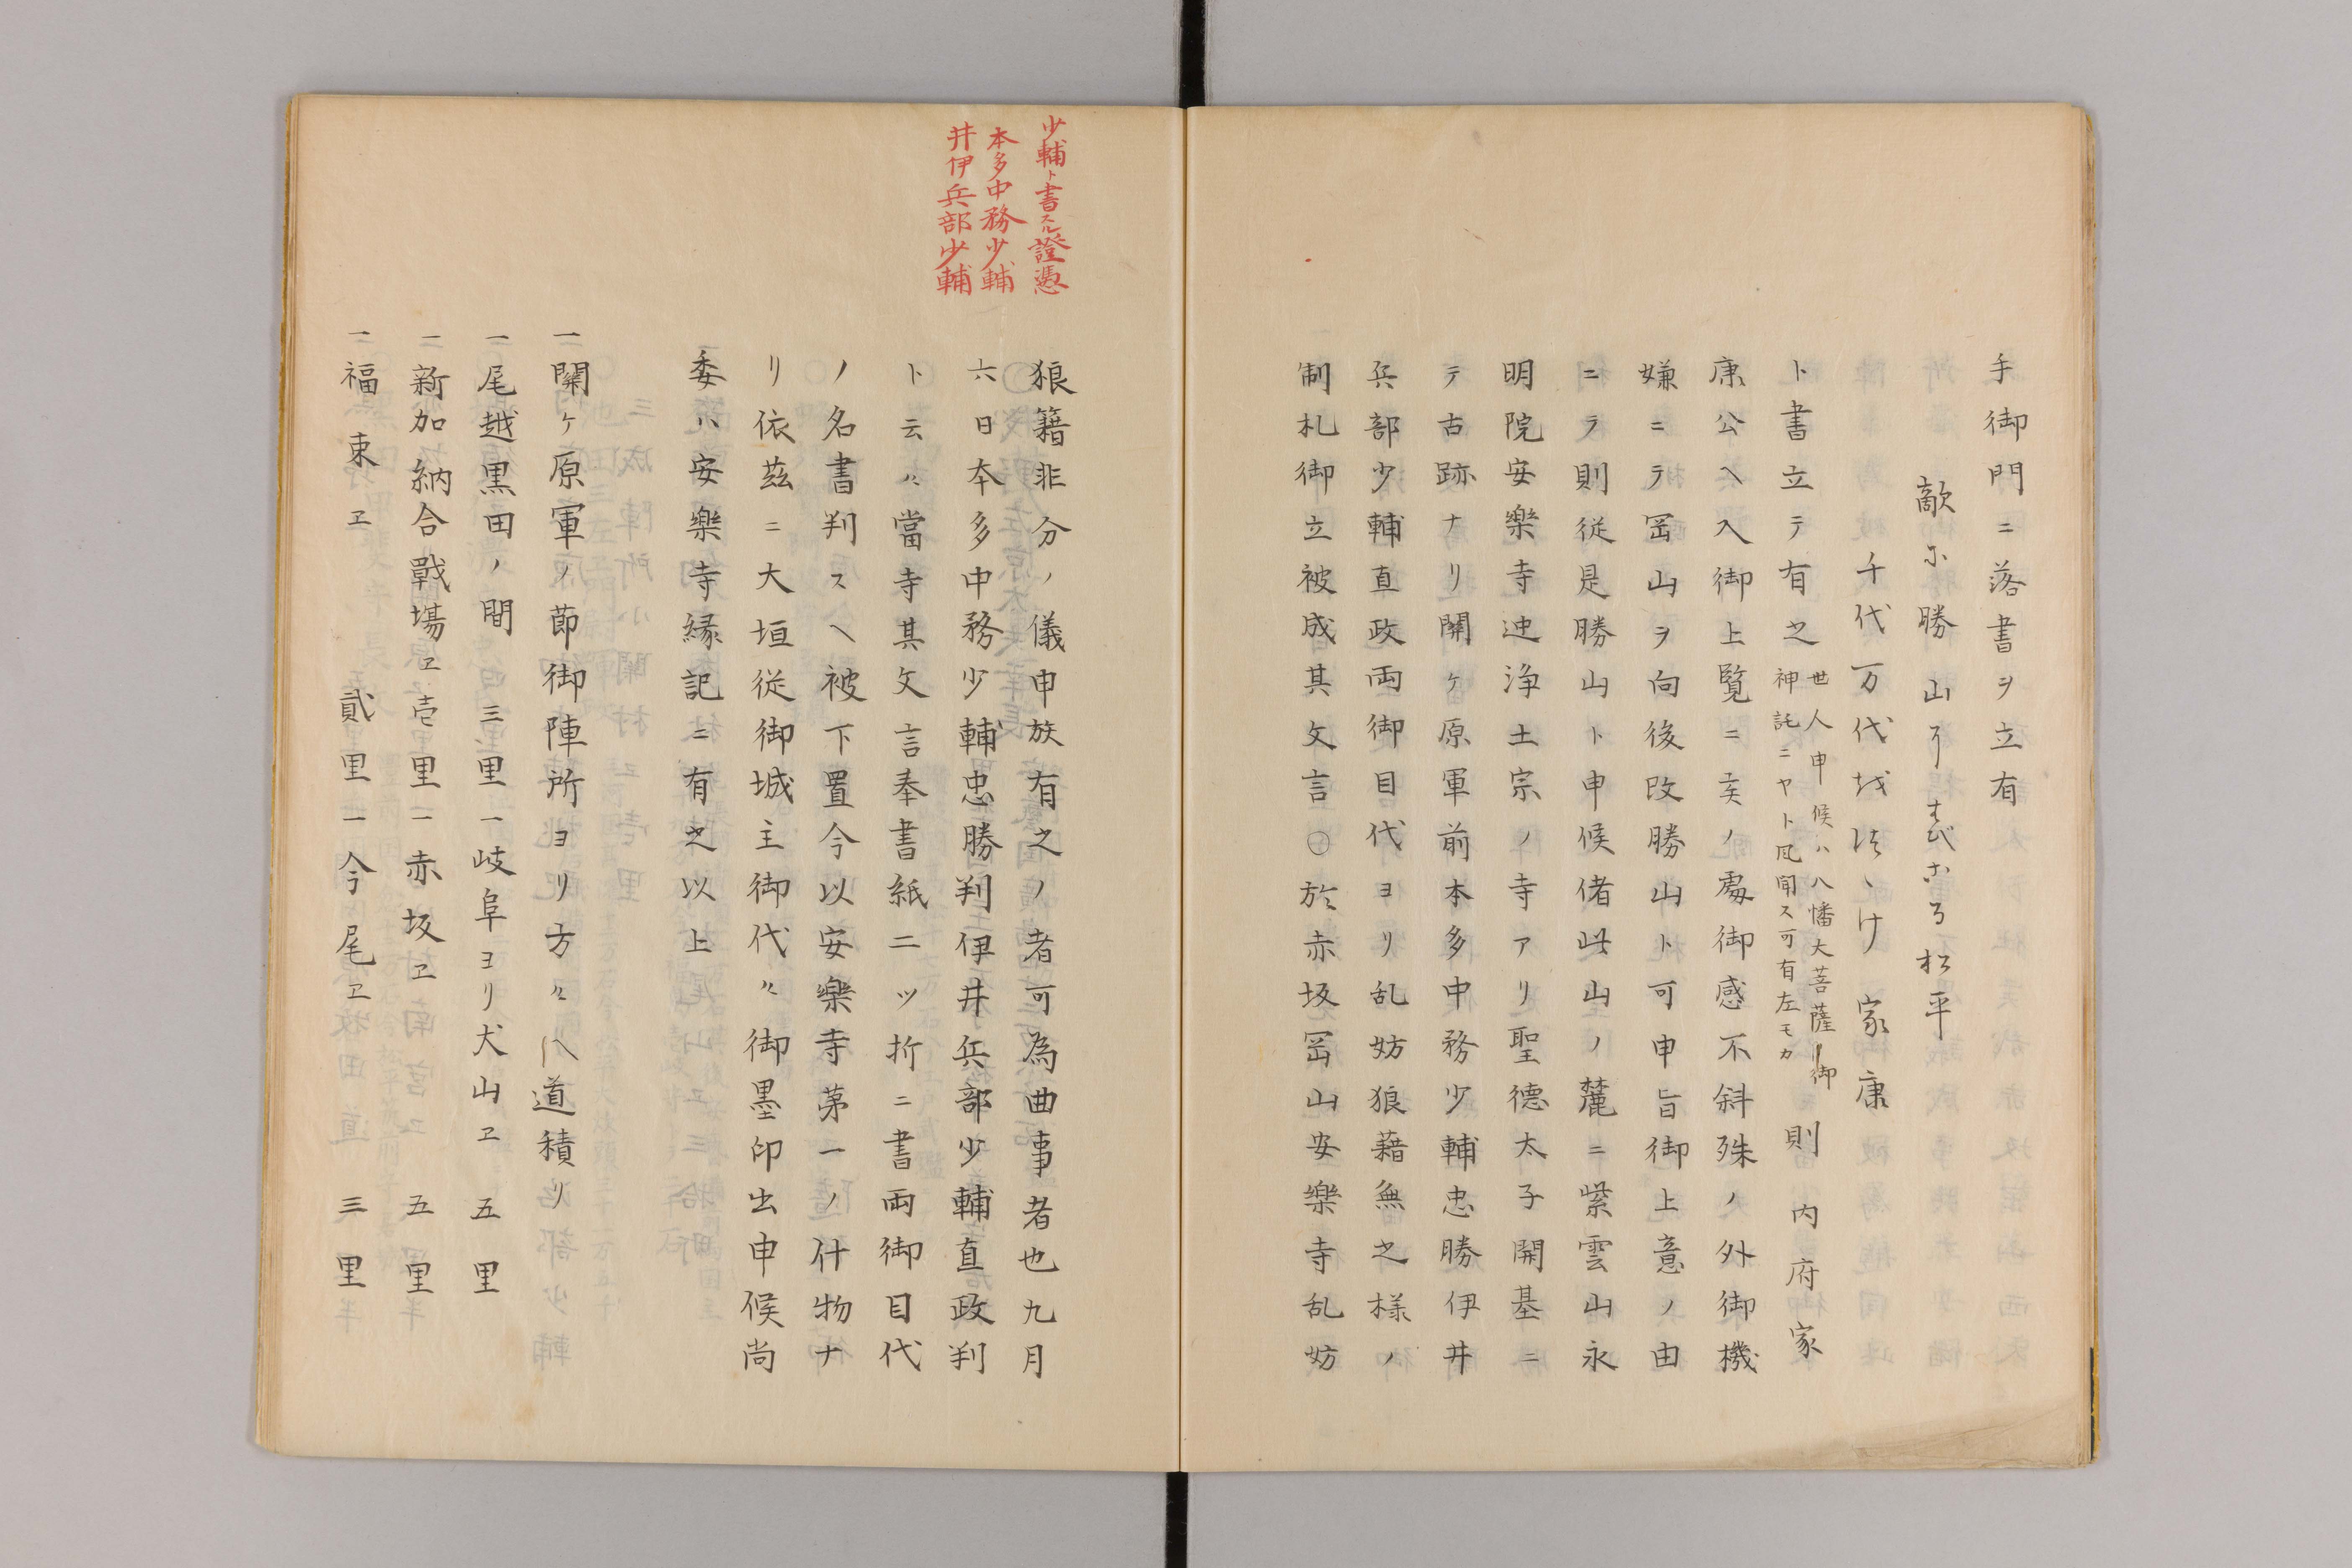 手御門ニ落書ヲ立有
敵に勝山
松平
千代万代
家康
ト書立テ有之
世人申候ハ八幡大菩薩ノ御
神託ニヤト風聞ス可有左モカ
則 内府家
康公ヘ入御上覧ニ
ノ處御感不斜殊ノ外御機
嫌ニテ岡山ヲ向後改勝山ト可申旨御上意ノ由
ニテ則従是勝山ト申候偖此山ノ麓ニ紫雲山永
明院安楽寺迚浄土宗ノ寺アリ聖德太子開基ニ
テ古跡ナリ関ケ原軍前本多中務少輔忠勝伊井
兵部少輔直政両御目代ヨリ乱妨狼藉無之様ノ
制札御立被成其文言〇於赤坂岡山安樂寺乱妨
少輔ト書スル證憑
本多中務少輔
井伊兵部少輔
狼籍非分ノ儀申族有之ノ者可為曲事者也九月
六日本多中務少輔忠勝判伊井兵部少輔直政判
ト云々當寺其文言奉書紙二ツ折ニ書両御目代
ノ名書判スヘ被下置今以安樂寺第一ノ什物ナ
リ依茲ニ大垣従御城主御代々御墨印出申候尚
委ハ安樂寺縁記ニ有之以上
一関ケ原軍ノ節御陣所ヨリ方々ヘ道積リ
一尾越黒田ノ間 三里 一岐阜ヨリ犬山エ 五里
一新加納合戰場エ壱里 一赤坂エ 五里
一福束エ 貳里 一今尾エ 三里